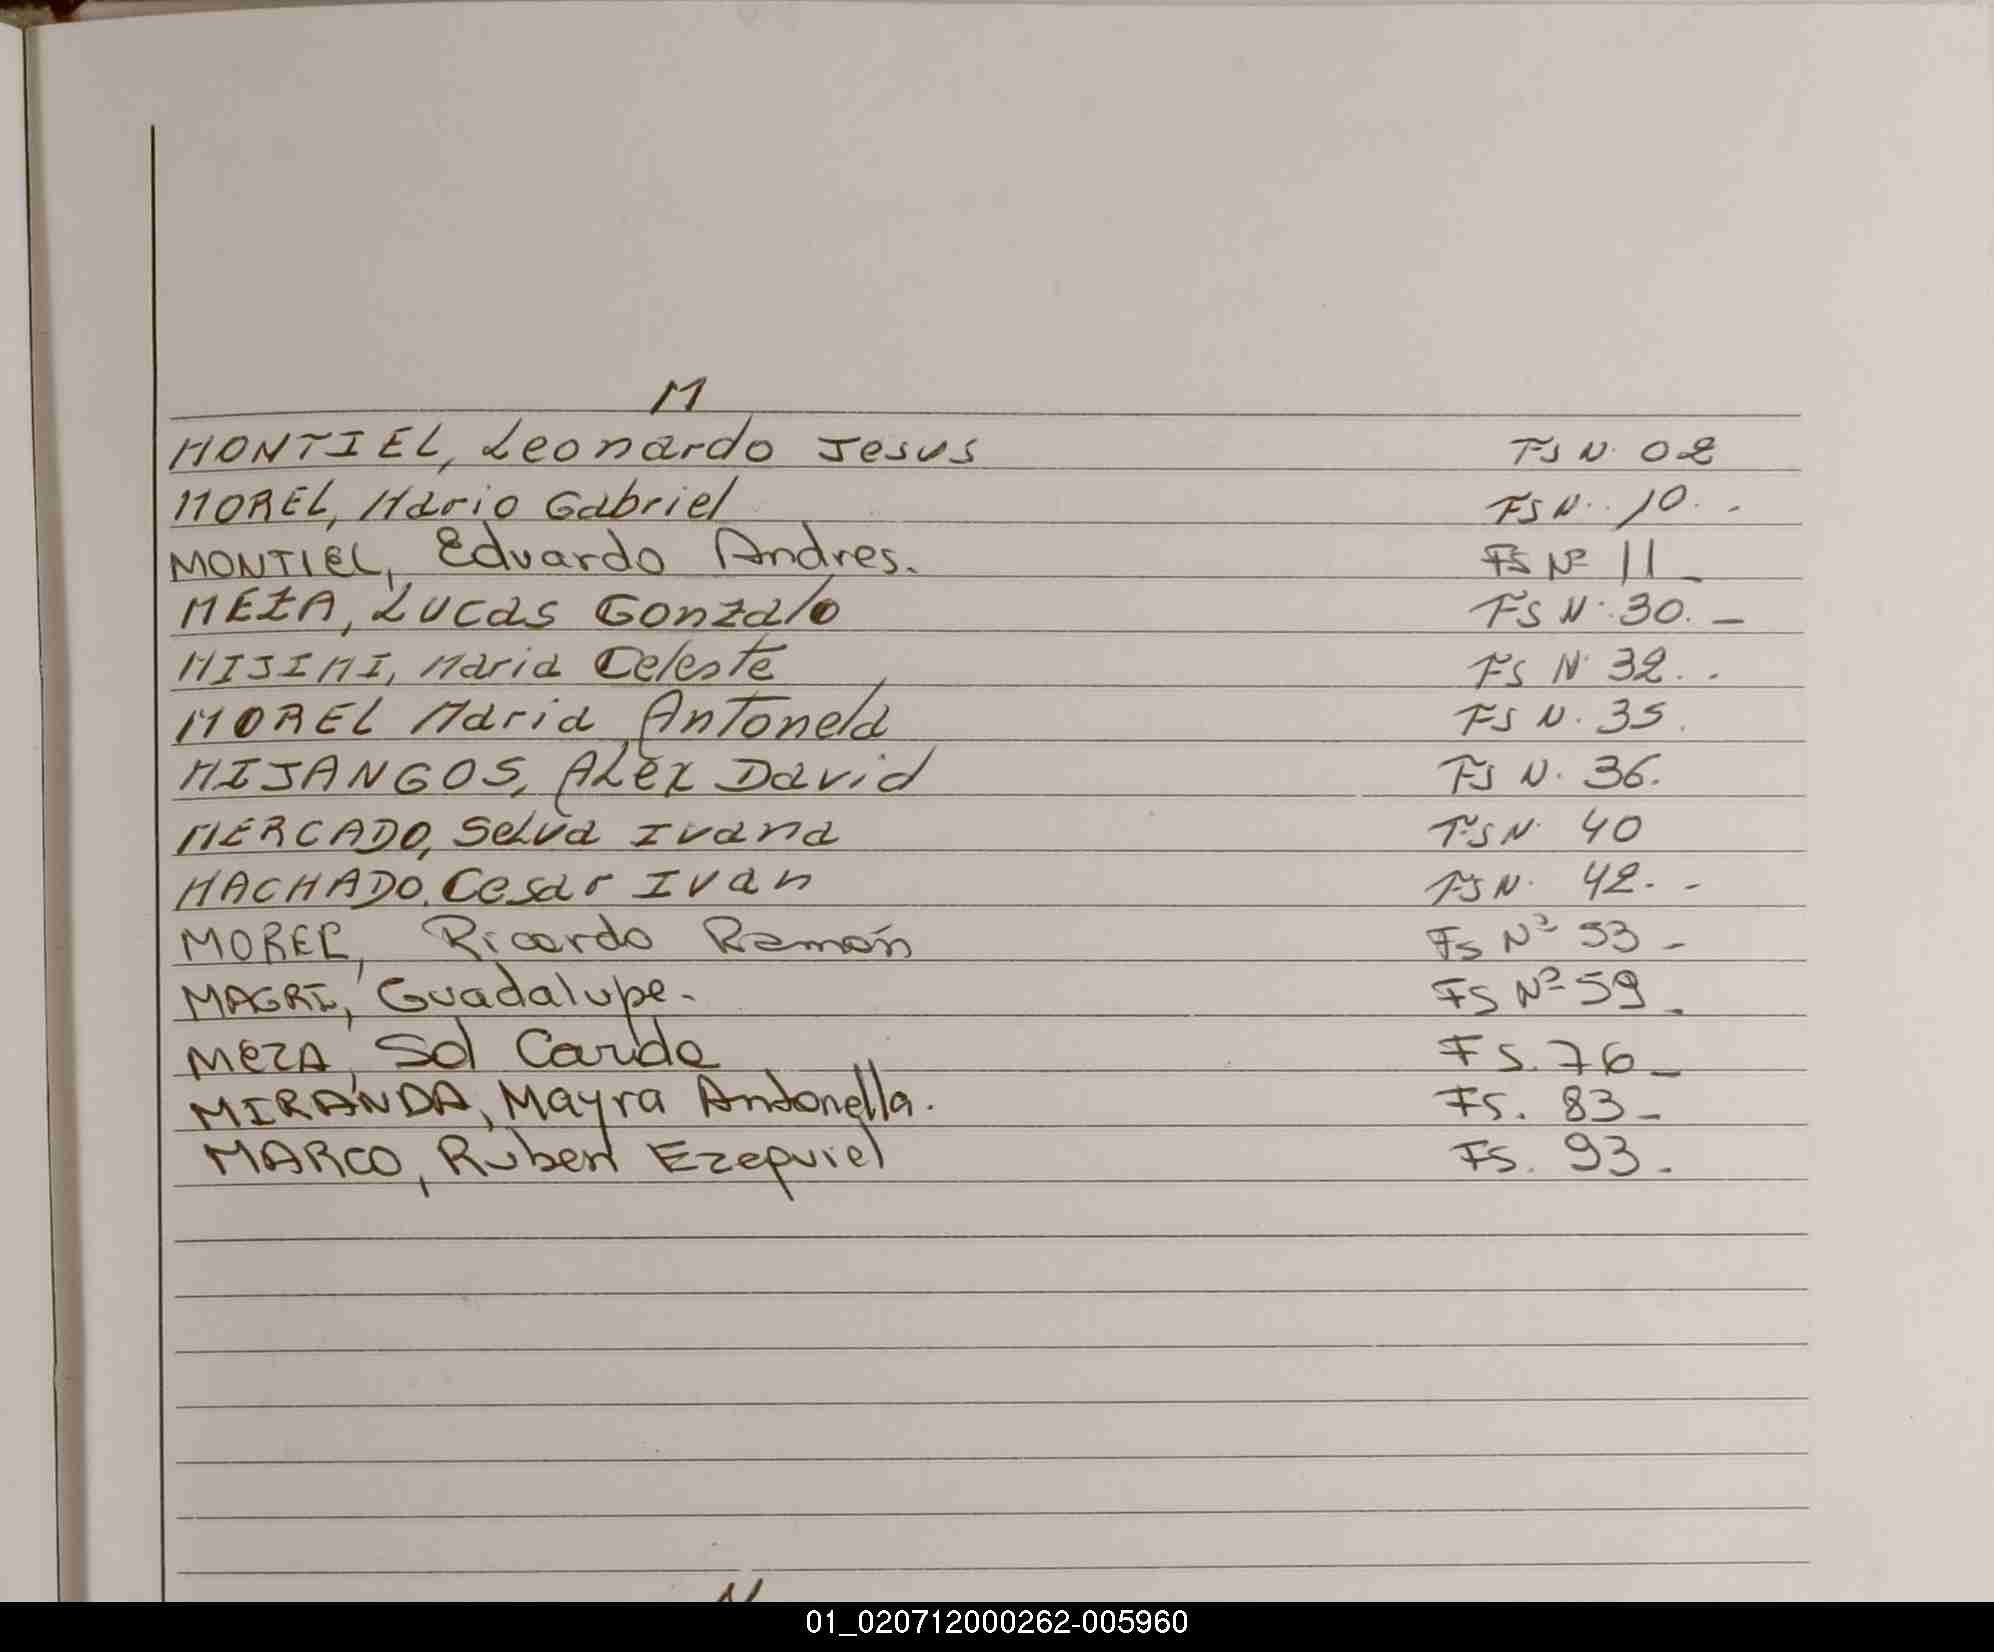 M
MONTIEL, Leonardo Jesus FS N. 02
MOREL, Mario Gabriel FS N. 10. -
MONTIEL, Eduardo Andres. FS Nº 11 -
MEZA, Lucas Gonzalo FS N. 30. -
MISIMI, Maria Celeste FS N. 32. -
MOREL Maria Antonela FS N. 35.
MIJANGOS, ALEX David FS N. 36.
MERCADO, Selva Ivana FS N. 40
MACHADO. Cesar Ivan FS N. 42. -
MOREL, Ricardo Ramón FS Nº 53 -
MAGRI, Guadalupe. FS Nº 59 -
MEZA, Sol FS. 76 -
MIRANDA, Mayra Antonella. FS. 83 -
MARCO, Ruben Ezequiel FS. 93.
N
01_020712000262-005960